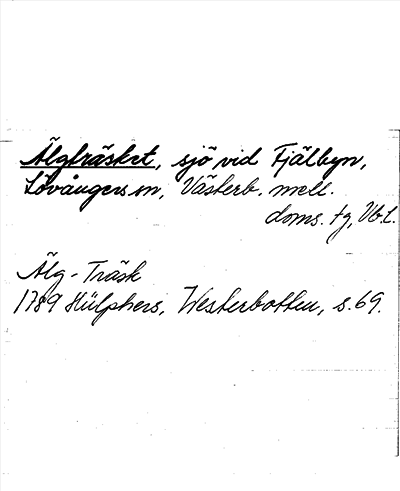 Älgträsket, sjö vid Fjälbyn,
Lövångers sn, Västerb. mell.
doms. tg, Vb. L.
Älg-Träsk
1789 Hülphers, Westerbotten, s. 69.